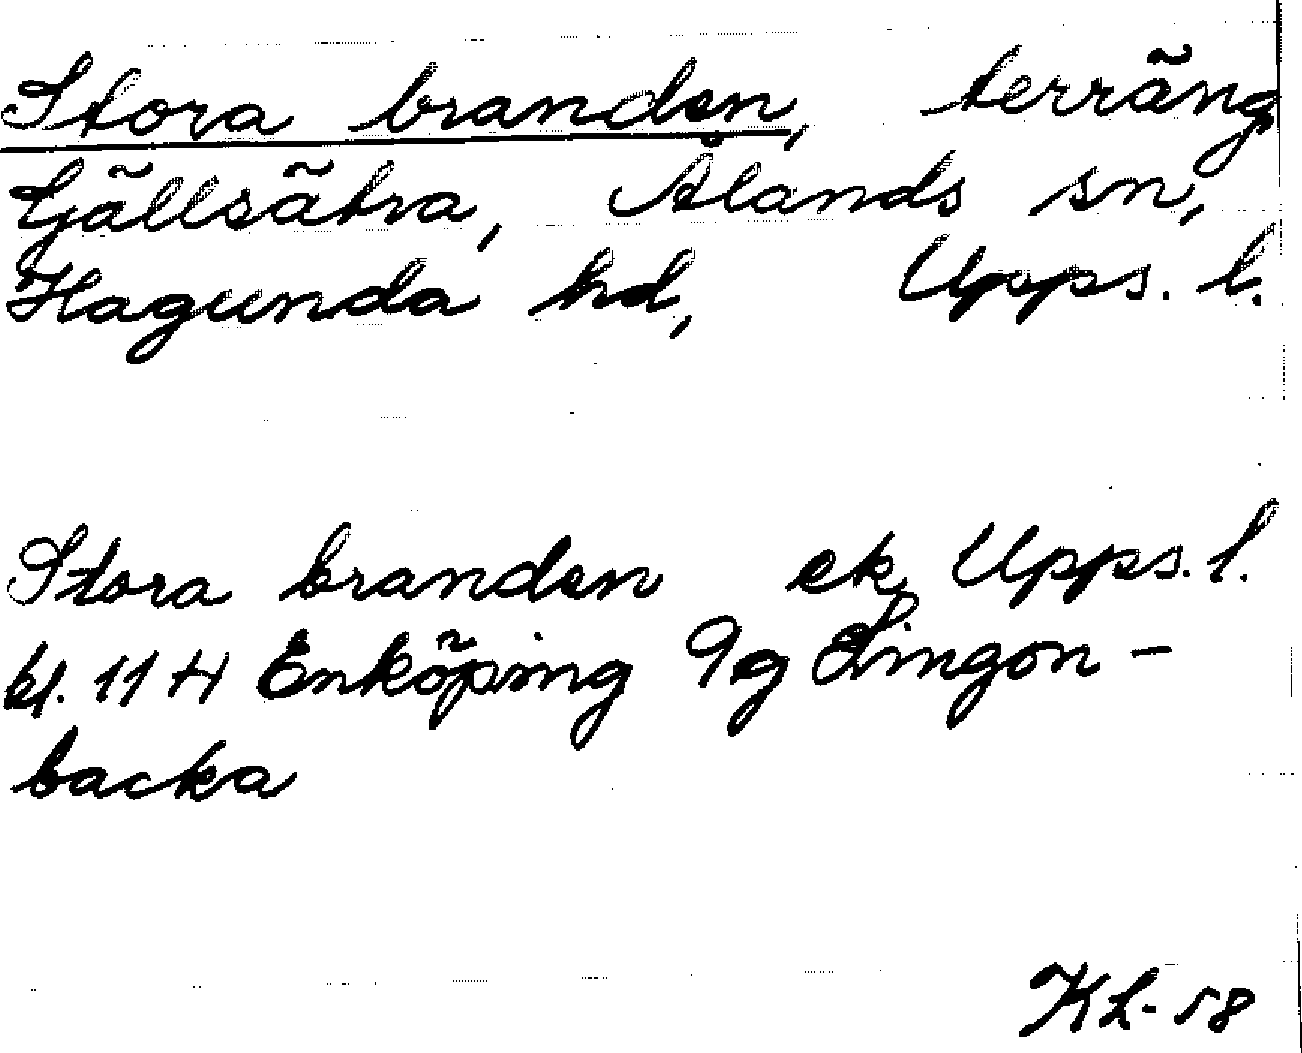 Stora branden, terräng
Gällsäbra, Ålands sn,
Hagunda hd, Upps. l.
Stora branden ek Upps. l.
bl. 11 H Enköping 9g Lingon-
backa
KL-58